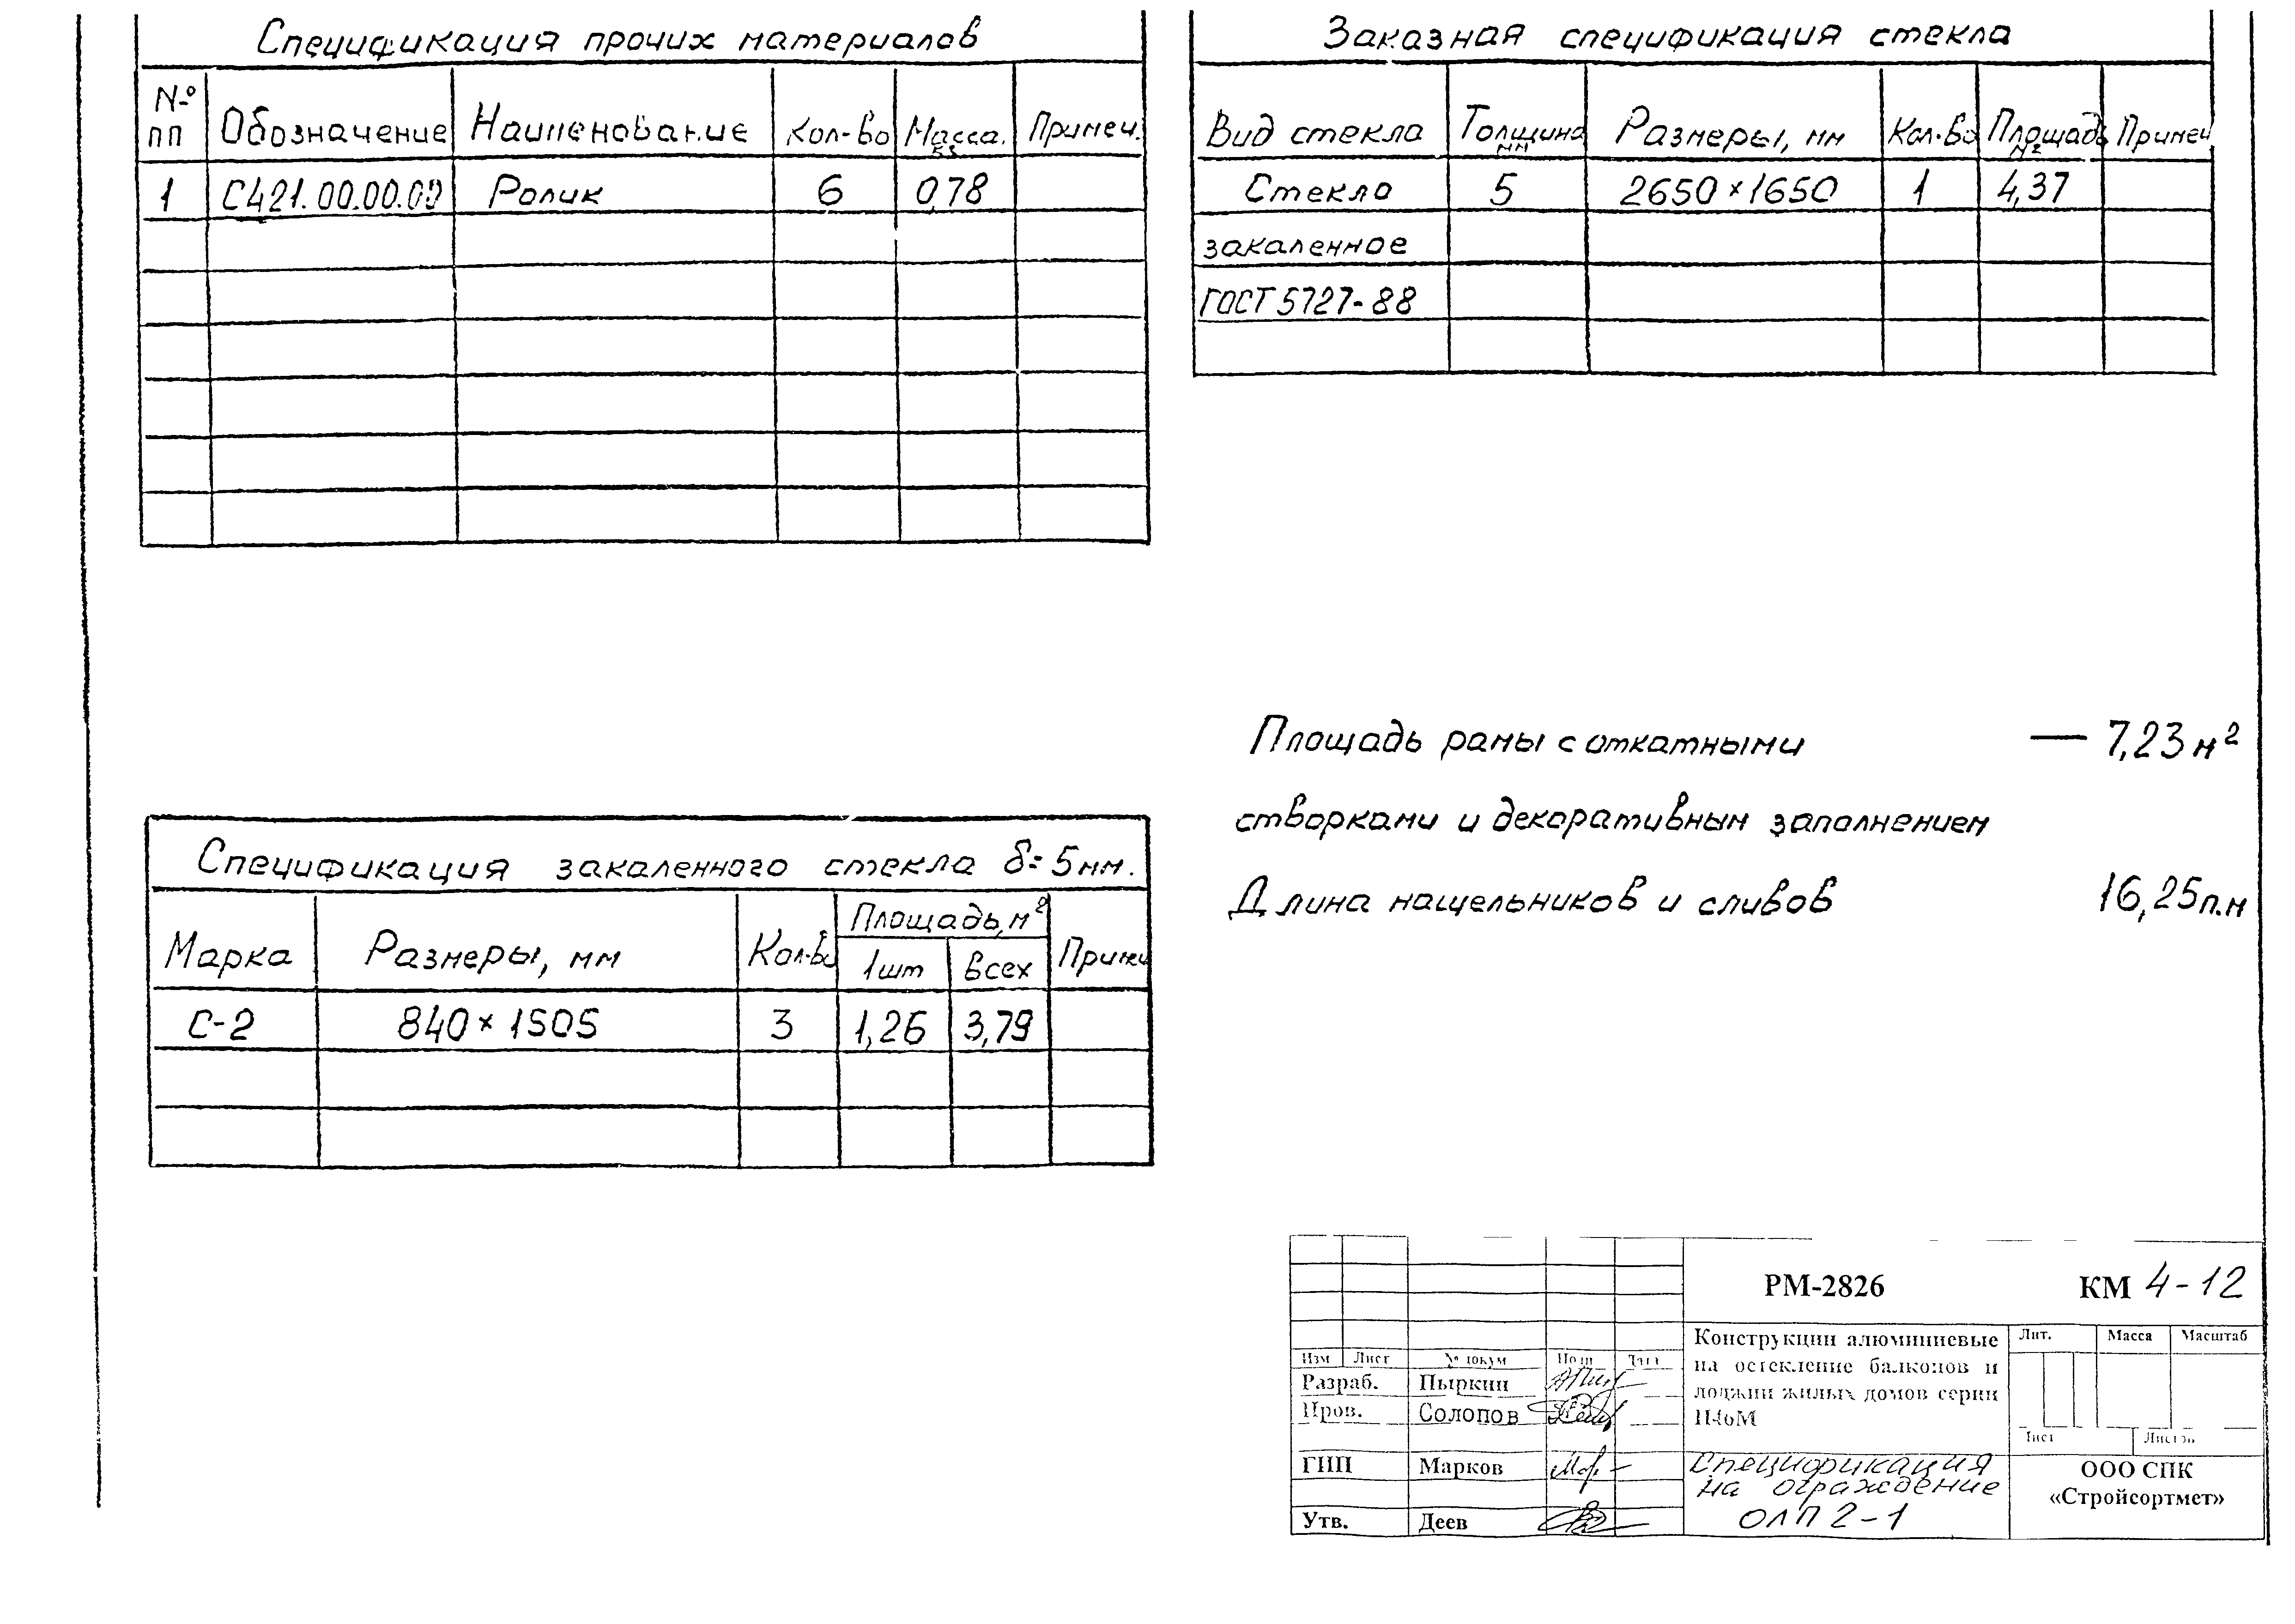 Спецификация прочих материалов
№ пп Обозначение Наименование Кол-во Масса, кг Примеч.
1 С421.00.00.00 Ролик 6 0,78
Заказная спецификация стекла
Вид стекла Толщина мм Размеры, мм Кол-во Площадь м² Примеч
Стекло 5 2650×1650 1 4,37
закаленное
ГОСТ 5727-88
Площадь рамы с откатными — 7,23 м²
створками и декоративным заполнением
Длина нащельников и сливов 16,25 п.м
Спецификация закаленного стекла δ=5мм.
Марка Размеры, мм Кол-во Площадь, м² Примеч
1шт Всех
С-2 840×1505 3 1,26 3,79
РМ-2826 КМ 4-12
Изм Лист № докум Подп Дата
Разраб. Пыркин
Пров. Солопов
ГИП Марков
Утв. Деев
Конструкции алюминиевые
на остекление балконов и
лоджии жилых домов серии
Лит. Масса Масштаб
Лист Листов
Спецификация
на ограждение
ОЛП 2-1
ООО СПК
«Стройсортмет»